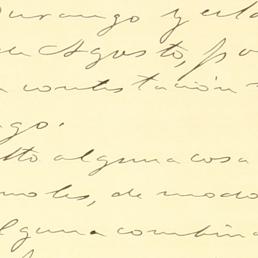 Durango y el
de Agosto, po
contestación
ago.
tto alguna cosa
moles, de modo
alguna combin